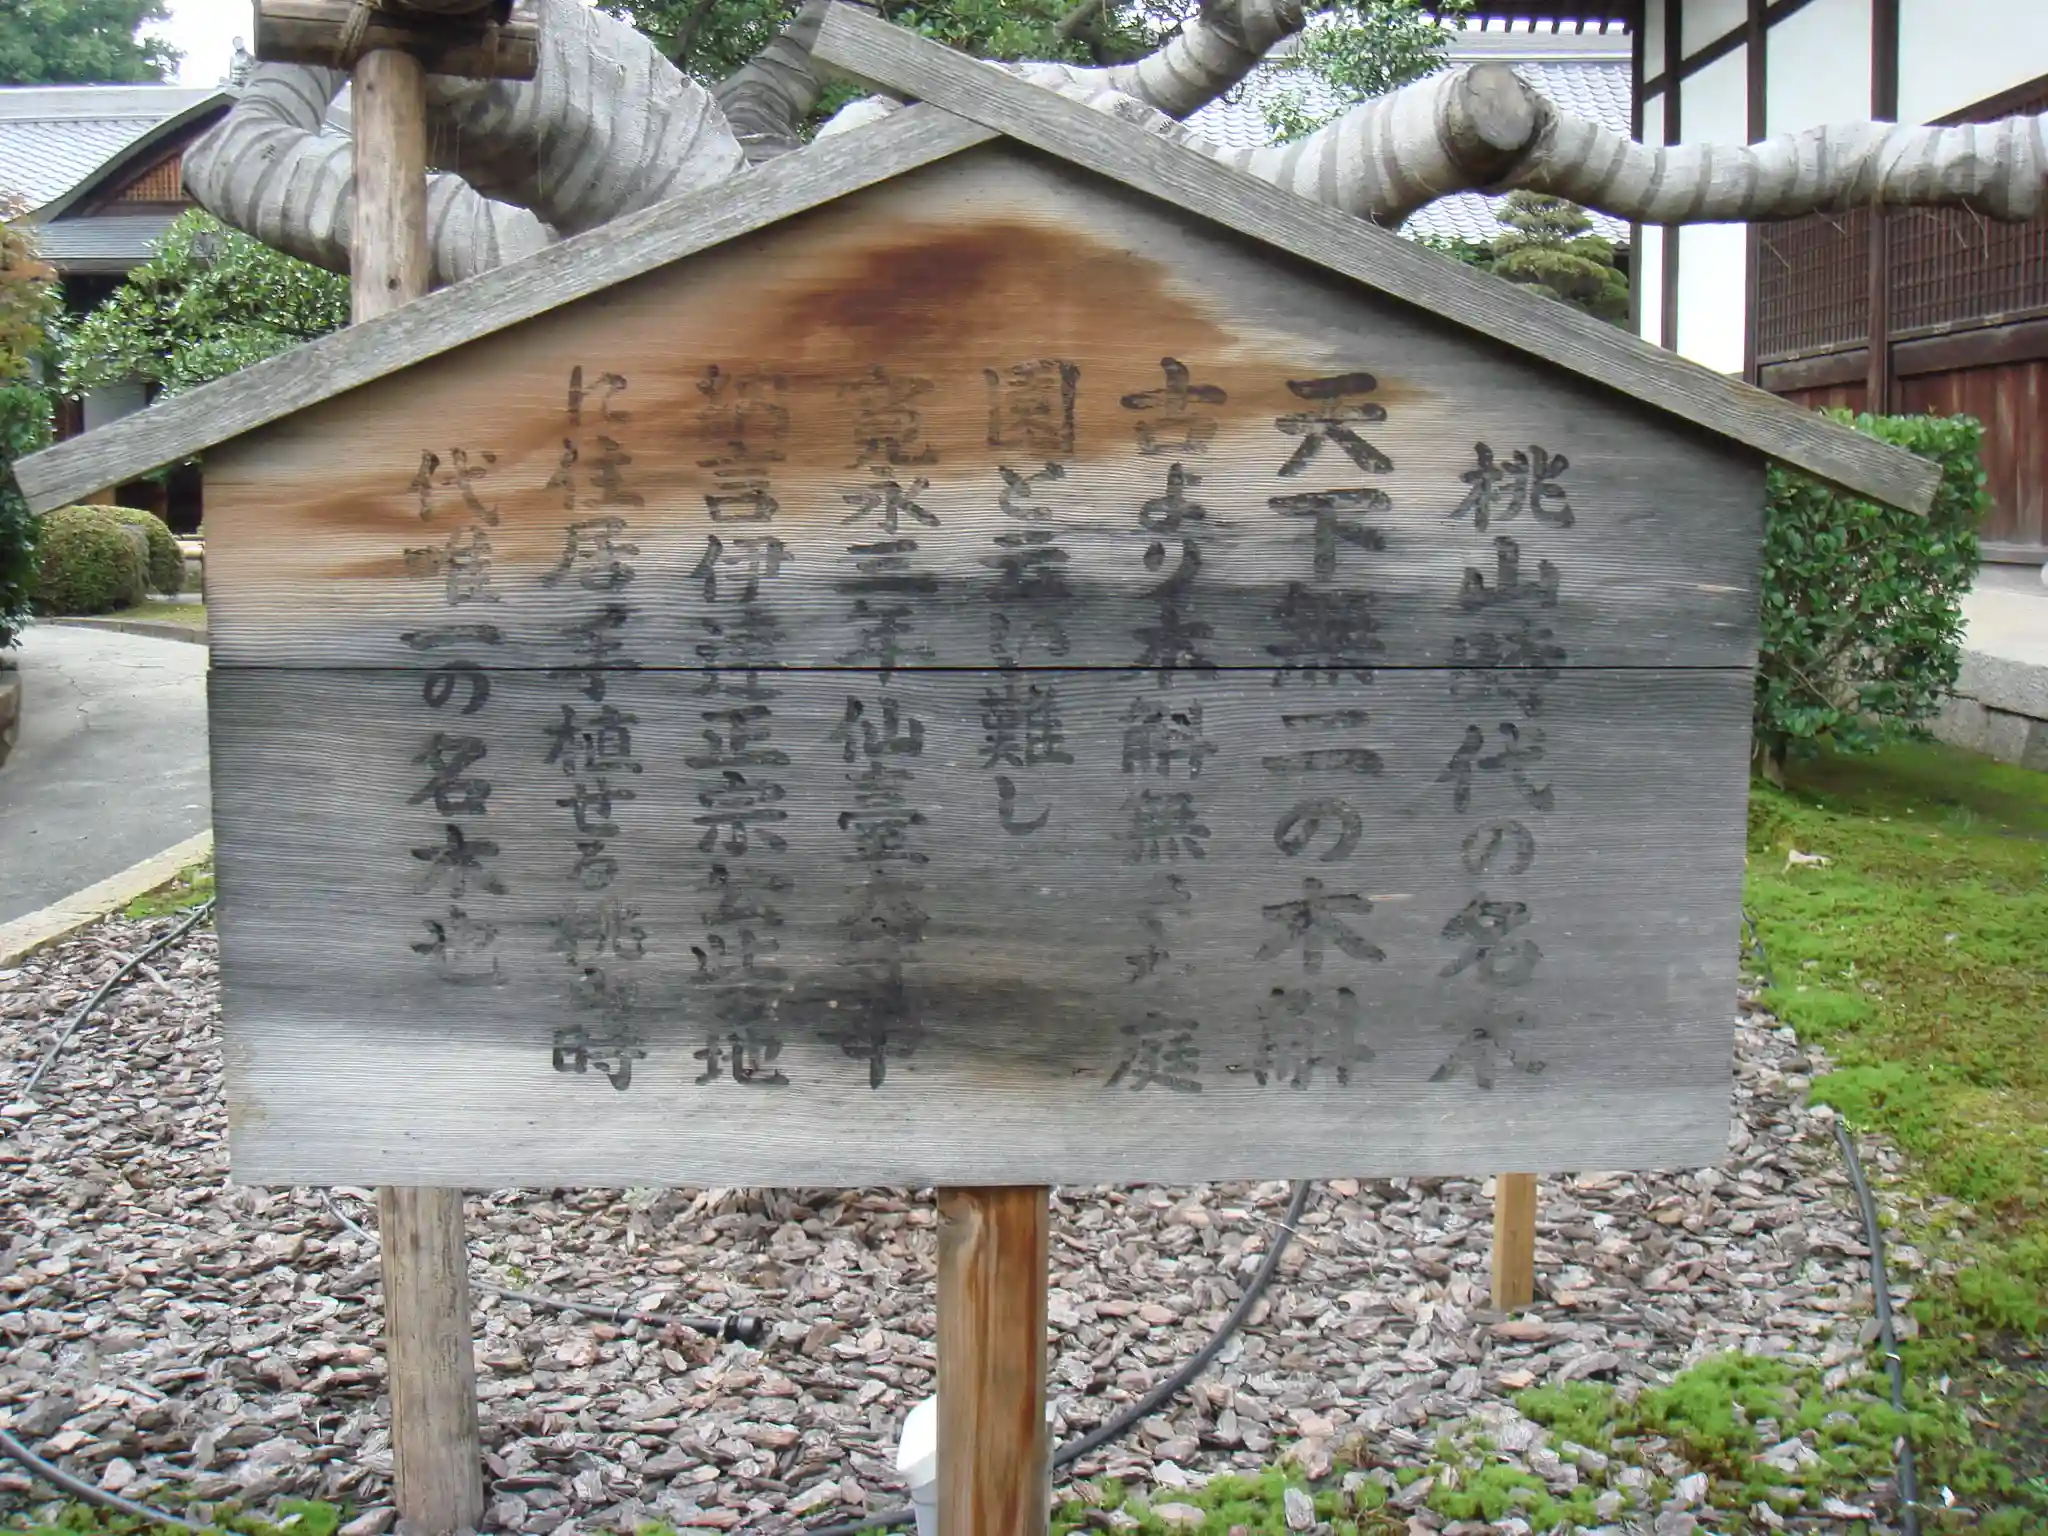 桃山時代の名木
天下無二の木斛
古より木斛無き庭
園と云い難し
寛永二年仙臺
納言伊達正宗公此地
に住居手植せる桃山時
代唯一の名木也